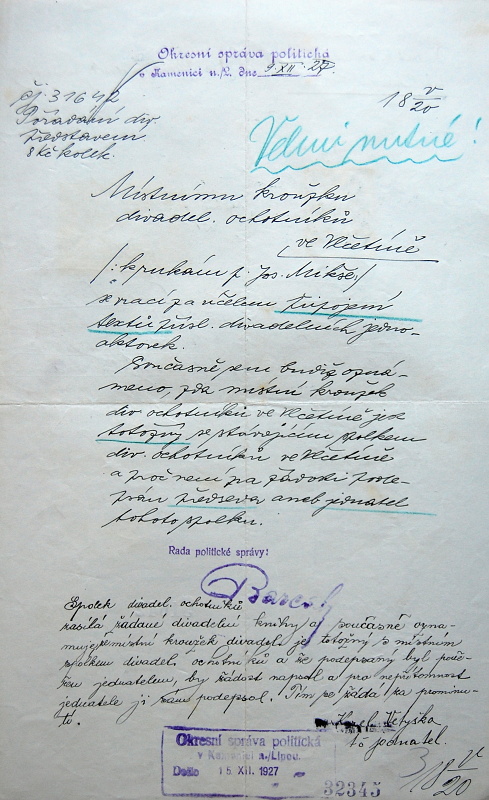 Okresní správa politická
v Kamenici n./L. dne 9. XII. 27.
čj. 31642
Pořádání div.
představení
8 Kč kolek.
18 V/20
Velmi nutné!
Místnímu kroužku
divadel. ochotníků
ve Včelničce
/: k rukám p. Jos. Mikše :/
se vrací za účelem připojení
textů přísl. divadelních jedno-
aktovek.
Současně sem budiž ozná-
meno, zda místní kroužek
div. ochotníků ve Včelničce jest
totožný se stávajícím spolkem
div. ochotníků ve Včelničce
a proč není na žádosti pode-
psán předseda aneb jednatel
tohoto spolku.
Rada politické správy:
Spolek divadel. ochotníků
zasílá žádané divadelní knihy a současně ozna-
muje, že místní kroužek divadel. je totožný s místním
spolkem divadel. ochotníků a že podepsaný byl pově-
řen jednatelem, by žádost napsal a pro nepřítomnost
jednatele ji sám podepsal. Tím se žádá za prominu-
tí.
t. č. jednatel.
Okresní správa politická
v Kamenici n./Lipou.
Došlo 15. XII. 1927
32345
18 V/20